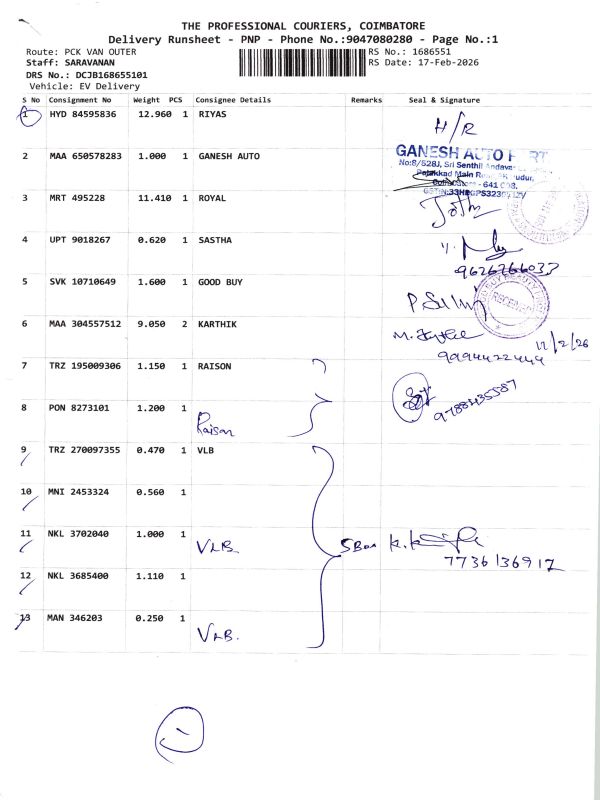 THE PROFESSIONAL COURIERS, COIMBATORE
Delivery Runsheet - PNP - Phone No.:9047080280 - Page No.:1
Route: PCK VAN OUTER RS No.: 1686551
Staff: SARAVANAN RS Date: 17-Feb-2026
DRS No.: DCJB168655101
Vehicle: EV Delivery
S No Consignment No Weight PCS Consignee Details Remarks Seal & Signature
1 HYD 84595836 12.960 1 RIYAS H/R
2 MAA 650578283 1.000 1 GANESH AUTO
GANESH AUTO
No:8/528J, Sri Senthil Andavar
Main Road
- 641 008.
3 MRT 495228 11.410 1 ROYAL
4 UPT 9018267 0.620 1 SASTHA
9626266033
5 SVK 10710649 1.600 1 GOOD BUY
RECEIVED
6 MAA 304557512 9.050 2 KARTHIK
9994422449
7 TRZ 195009306 1.150 1 RAISON
8 PON 8273101 1.200 1 Raison
9 TRZ 270097355 0.470 1 VLB
10 MNI 2453324 0.560 1
11 NKL 3702040 1.000 1 VLB
7736136917
12 NKL 3685400 1.110 1
13 MAN 346203 0.250 1 VLB.